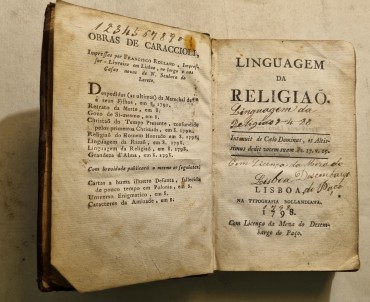 1234567890
OBRAS DE CARACCIOLI,
Impressas por FRANCISCO ROLLAND, Impres-
sor-Livreiro em Lisboa, no largo e nas
Casas novas de N. Senhora do
Loreto.
Despedidas (as ultimas) da Marechal de
a seus Filhos, em 8. 1791.
Retrato da Morte, em 8.
Gozo de Si-mesmo, em 8.
Christão do Tempo Presente, confundido
pelos primeiros Christãos, em 8. 1790.
Religião do Homem Honrado em 8. 1790.
Linguagem da Razaõ, em 8. 1798.
Linguagem da Religiaõ, em 8. 1798.
Grandeza d'Alma, em 8. 1798.
Com brevidade publicará as mesmo as seguintes:
Cartas a huma illustre Defunta, fallecida
de pouco tempo em Polonia, em 8.
Universo Enigmatico, em 8.
Caracteres da Amizade, em 8.
LINGUAGEM
DA
RELIGIAÕ.
Linguagem da
Religiaõ
Intonuit de Cœlo Dominus, et Altis-
simus dedit vocem suam Ps. 17.
Com Licença da Meza do
Lisboa Desembargo
LISBOA, do Paço
NA TYPOGRAFIA ROLLANDIANA.
1798.
Com Licença da Meza do Desem-
bargo do Paço.